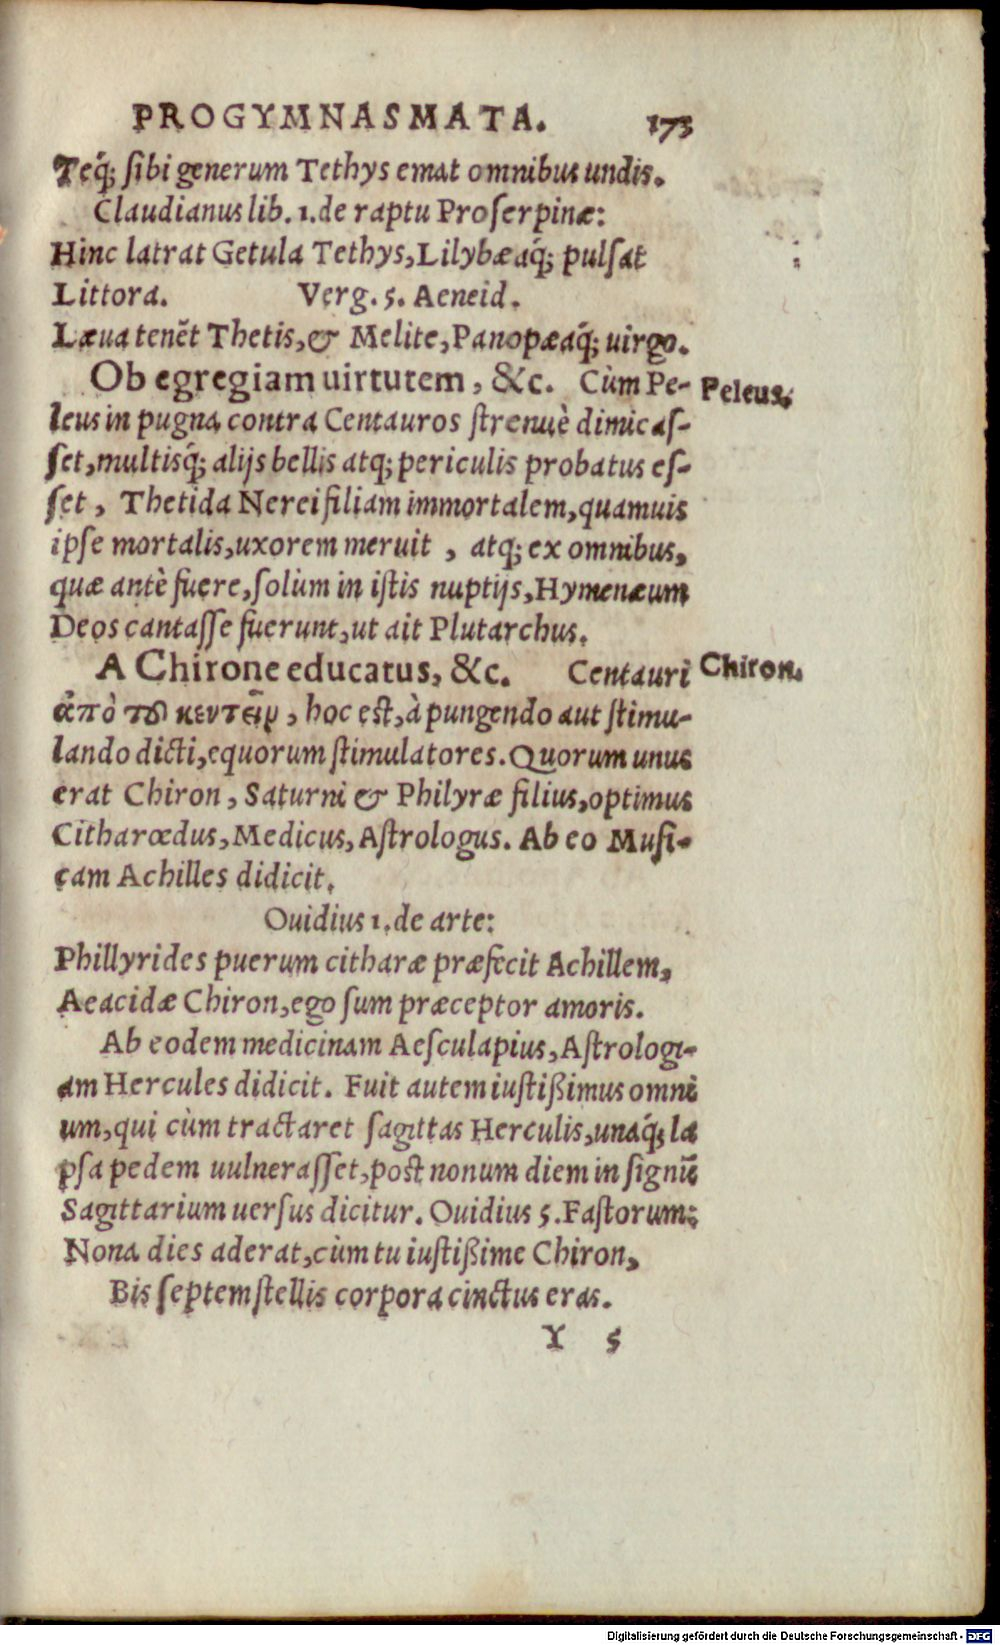 PROGYMNASMATA. 173
Teq́; ſibi generum Tethys emat omnibus undis.
Claudianus lib. 1. de raptu Proſerpinæ:
Hinc latrat Getula Tethys, Lilybæaq́; pulſat
Littora. Verg. 5. Aeneid.
Læua tenẽt Thetis, & Melite, Panopæaq́; uirgo.
Ob egregiam uirtutem, &c. Cùm Pe-
Peleus.
leus in pugna contra Centauros ſtrenuè dimicaſ-
ſet, multisq́; alijs bellis atq; periculis probatus eſ-
ſet, Thetida Nerei filiam immortalem, quamuis
ipſe mortalis, uxorem meruit, atq; ex omnibus,
quæ antè fuere, ſolùm in iſtis nuptijs, Hymenæum
Deos cantaſſe fuerunt, ut ait Plutarchus.
A Chirone educatus, &c. Centauri
Chiron.
ἀπὸ τοῦ κεντεῖν, hoc eſt, à pungendo aut ſtimu-
lando dicti, equorum ſtimulatores. Quorum unus
erat Chiron, Saturni & Philyræ filius, optimus
Citharœdus, Medicus, Aſtrologus. Ab eo Muſi-
cam Achilles didicit.
Ouidius 1. de arte:
Phillyrides puerum citharæ præfecit Achillem,
Aeacidæ Chiron, ego ſum præceptor amoris.
Ab eodem medicinam Aeſculapius, Aſtrologi-
am Hercules didicit. Fuit autem iuſtißimus omni
um, qui cùm tractaret ſagittas Herculis, unaq́; la
pſa pedem uulneraſſet, poſt nonum diem in ſignũ
Sagittarium uerſus dicitur. Ouidius 5. Faſtorum:
Nona dies aderat, cùm tu iuſtißime Chiron,
Bis ſeptem ſtellis corpora cinctus eras.
Y 5
Digitalisierung gefördert durch die Deutsche Forschungsgemeinschaft - DFG